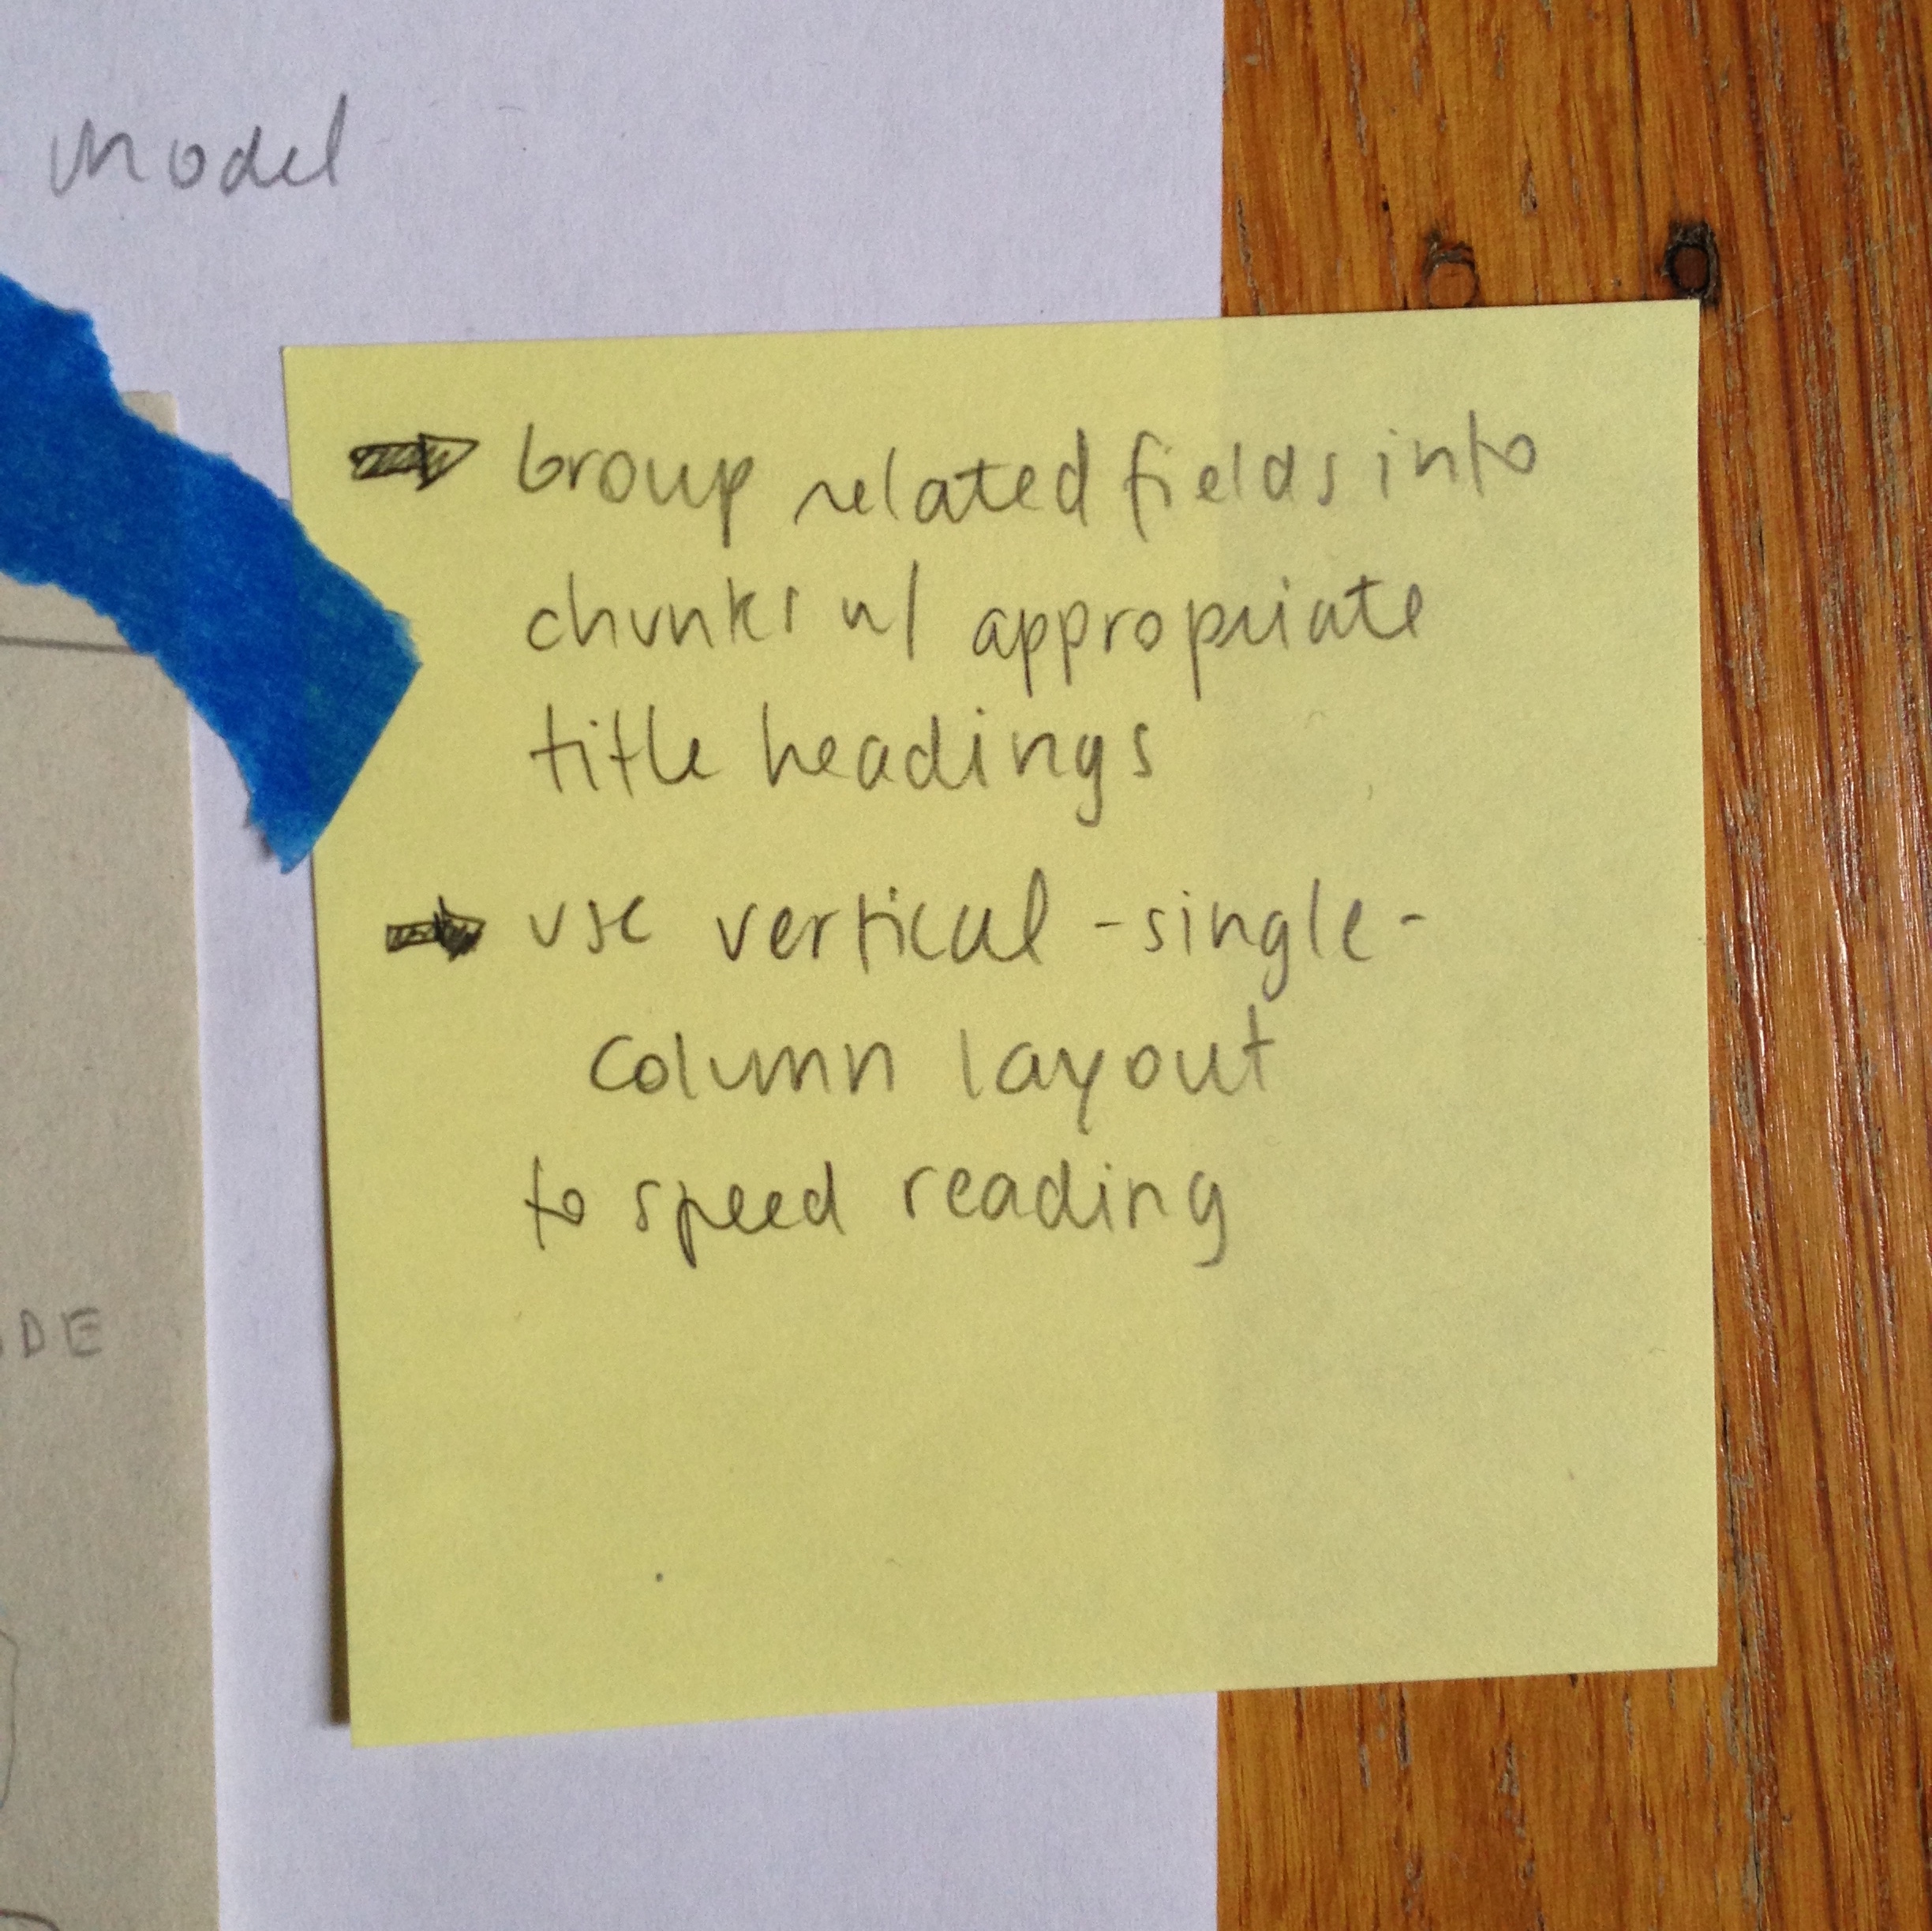 model
➡ Group related fields into
chunks w/ appropriate
title headings
➡ use vertical -single-
column layout
to speed reading
DE